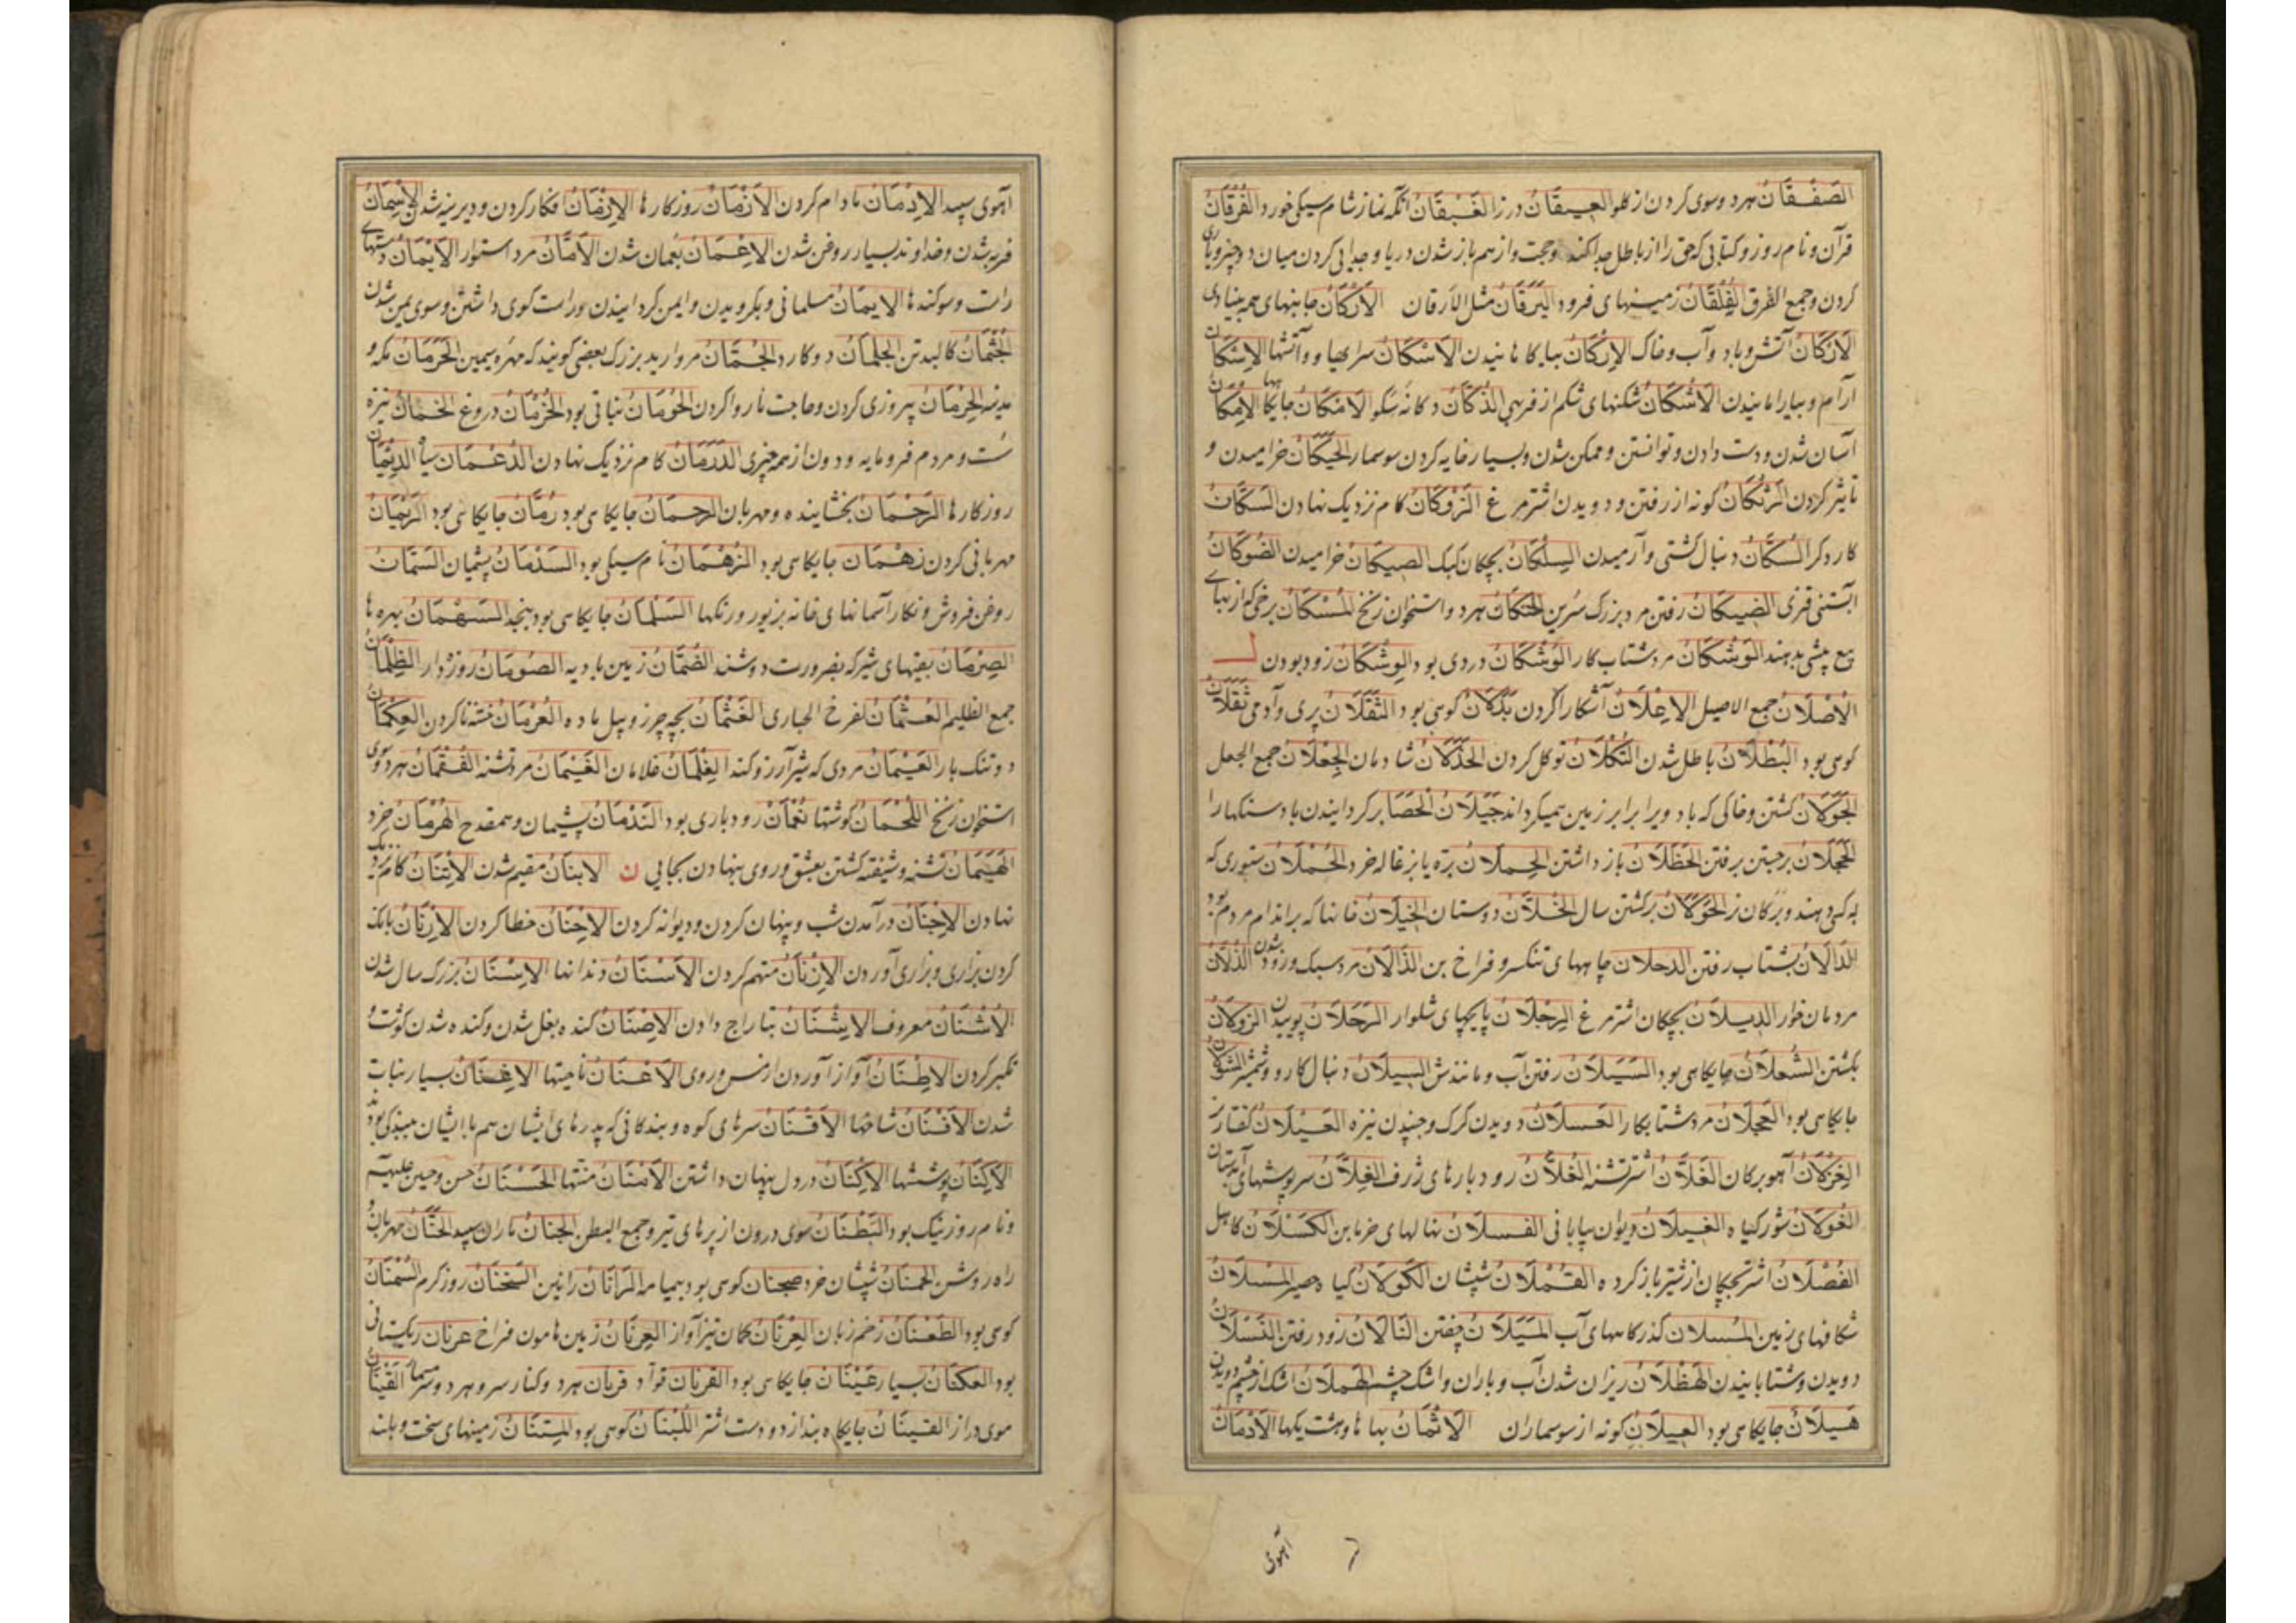 الصَّفْقَانُ هر دو سوی کردن از کلو العِیقَانُ درز الغَبْقَانُ آنکه نماز شام سیکی خورد الفُرْقَانُ
قرآن و نام روز و کتابی که حق را از باطل جدا کند و حجت و از هم باز شدن دریا و جدایی کردن میان دو چیز و یاری
کردن و جمع الفرق الفُلْقَانُ زمینهای فرود الیَرَقَانُ مثل الارقان الاَرْکَانُ جانبهای همه بنیادی
الاَرْکَانُ آتش و باد و آب و خاک الاِرْکَانُ الاَسْکَانُ الاِسْکَانُ
آرام و بیارامانیدن الاَشْکَانُ شکنهای شکم از فربهی الدُّکَّانُ دکانه سکو الاَمْکَانُ جایکاهها الاِمْکَانُ
آسان شدن و دست دادن و توانستن و ممکن شدن و بسیار خایه کردن سوسمار الحَیَکَانُ خرامیدن و
تاثیر کردن الرَّتَکَانُ کونه از رفتن و دویدن اشتر مرغ الزَّوَکَانُ کام نزدیک نهادن السَّکَّانُ
کارد کر السُّکَّانُ دنبال کشتی و آرمیدن السِّلْکَانُ بچکان کبک الصَیَکَانُ خرامیدن الضَّوَکَانُ
الضَّیَکَانُ رفتن مرد بزرک سرین الحَنَکَانُ هر دو استخوان زنخ المُسْکَانُ برخی که از بهای
بیع پیشی بدهند الوَشْکَانُ مرد شتاب کار الوُشْکَانُ دردی بود الوِشْکَانُ زود بودن ل
الاُصْلَانُ جمع الاصیل الاِعْلَانُ آشکارا کردن بَذْلَانُ کوهی بود الثَّقَلَانُ پری و آدمی ثَقَلَانُ
کوهی بود البُطْلَانُ باطل شدن التُّکْلَانُ توکل کردن الجَذْلَانُ شادمان الجِعْلَانُ جمع الجعل
الجَوَلَانُ کشتن و خاکی که باد ویرا برابر زمین همیکرداند جَیَلَانُ الحَصَا بر کردانیدن باد سنکها را
الحَجَلَانُ برجستن برفتن الحَظَلَانُ باز داشتن الحِمْلَانُ بره یا بزغاله خرد الحُمْلَانُ ستوری که
به کسی دهند الحَوَلَانُ بر کشتن سال الخُلَّانُ دوستان الخِیلَانُ خانها که بر اندام مردم بود
الدَّالَانُ بشتاب رفتن الدحلان چاههای تنک سر و فراخ بن الذَّالَانُ مرد سبک و زود شدن الذُّلَّانُ
مردمان خوار الذِّیلَانُ بچکان اشتر مرغ الرِّجْلَانُ پایچهای شلوار الرَّحَلَانُ پوییدن الزَّوَلَانُ
بکشتن الشُّعْلَانُ جایکاهی بود السَّیَلَانُ رفتن آب و مانندش السِّیلَانُ دنبال کارد و شمشیر
جایکاهی بود العَجْلَانُ مرد شتابکار العَسَلَانُ دویدن کرک و جنبیدن نیزه العَیْلَانُ کفتار نر
الغِزْلَانُ آهو برکان الغَلَّانُ اشتر تشنه الغُلَّانُ رودبارهای ژرف الغِلَّانُ
الغَوْلَانُ شور کیاه الغِیلَانُ دیوان بیابانی الفُسْلَانُ نهالهای خرما بن الکَسْلَانُ کاهل
الفُصْلَانُ اشتر بچکان از شیر باز کرده القُمْلَانُ شپشان الکَوْلَانُ کیاه حصیر المُسْلَانُ
شکافهای زمین المُسلان کذرکاههای آب المَیَلَانُ چفتن النَّالَانُ زود رفتن النَّسَلَانُ
دویدن و شتابانیدن الهَطَلَانُ ریزان شدن آب و باران و اشک چشم الهَمَلَانُ اشک از چشم دویدن
هَیْلَانُ جایکاهی بود العیلَانُ کونه از سوسماران الاَثْمَانُ بهاها و هشت یکها الاُدْمَانُ
آهوی
آهوی سپید الاِدْمَانُ مادام کردن الاَزْمَانُ روزکارها الاِزْمَانُ فکار کردن و دیرینه شدن الاِسْمَانُ
فربه شدن و خداوند بسیار روغن شدن الاِعْمَانُ بعمان شدن الاَمَّانُ مرد استوار الاَیْمَانُ دستهای
راست و سوکندها الاِیمَانُ مسلمانی و بکرویدن و ایمن کردانیدن و راست کوی داشتن و سوی یمن شدن
الجُثْمَانُ کالبد تن الجَلَمَانُ دو کارد الجُمَانُ مروارید بزرک بعضی کویند که مهره سیمین الحَرَمَانُ مکه و
مدینه الحِرْمَانُ پیروزی کردن و حاجت ناروا کردن الحَوْمَانُ نباتی بود الخُرْمَانُ دروغ الخَمَّانُ نیزه
سست و مردم فرومایه و دون از همه چیزی الدَّرَمَانُ کام نزدیک نهادن الدُّعْمَانُ سیاه الدِّیْمَانُ
روزکارها الرَّحْمَانُ بخشاینده و مهربان الرحمان جایکاهی بود رُمَّانُ جایکاهی بود الرِّئْمَانُ
مهربانی کردن زَهْمَانُ جایکاهی بود الزُّهْمَانُ نام سیکی بود السَّدْمَانُ پشیمان السَّمَّانُ
روغن فروش و نکار آسمانهای خانه بزیور و رنکها السَّلْمَانُ جایکاهی بود بنجد السُّهْمَانُ بهره ها
الصُّرْمَانُ الضُّمَّانُ زمین بادیه الصَّوْمَانُ روزه دار الظِّلْمَانُ
جمع الظلیم العُثْمَانُ لفرخ الحباری الغُثْمَانُ بچه چرز و پیل ماده العُرْمَانُ ختنه ناکردن العِکْمَانُ
دو تنک بار العَیْمَانُ مردی که شیر آرزو کند الغِلْمَانُ غلامان الغَیْمَانُ مرد تشنه الفُقْمَانُ هر دو سوی
استخوان زنخ اللُّحْمَانُ کوشتها نُعْمَانُ رودباری بود النَّدْمَانُ پشیمان و همقدح الهُرْمَانُ خرد
الهَیْمَانُ تشنه و شیفته کشتن بعشق و روی بنهادن بجایی ن الاِبنَانُ مقیم شدن الاَتَنَانُ کام نزدیک
نهادن الاِجْنَانُ درآمدن شب و پنهان کردن و دیوانه کردن الاِحْنَانُ خطا کردن الاِرْنَانُ بانک
کردن بزاری و بزاری آوردن الاِزْنَانُ متهم کردن الاَسْنَانُ دندانها الاِسْنَانُ بزرک سال شدن
الاُشْنَانُ معروف الاِشْنَانُ بتاراج دادن الاِصْنَانُ کنده بغل شدن و کنده شدن کوشت و
تکبر کردن الاِطْنَانُ آواز آوردن الاَعْنَانُ ناحیتها الاِغْنَانُ بسیار نبات
شدن الاَفْنَانُ شاخها الاَقْنَانُ سرهای کوه و بندکانی که پدرهای ایشان هم
الاَکْنَانُ پوششها الاِکْنَانُ در دل پنهان داشتن الاَمْنَانُ منتها الحَسَنَانُ حسن و حسین علیهم
و نام روز نیک بود البُطْنَانُ سوی درون از پرهای تیر و جمع البطن الجنَانُ ماران سپید الحَنَّانُ مهربان و
راه روشن الحَمْنَانُ شپشان خرد صحنان کوهی بود السُّخْنَانُ روز کرم السُّمْنَانُ
کوهی بود الطَّعْنَانُ زخم زبان العِرْنَانُ کمان تیز آواز العِرنَانُ زمین هامون فراخ عرنان ریکستانی
بود العَکْنَانُ بسیار عَیْنَانُ جایکاهی بود القرنَان القَیْنَانُ
موی دراز القَینَانُ جایکاه بند از دو دست اشتر اللُّبْنَانُ کوهی بود المِتْنَانُ زمینهای سخت و بلند